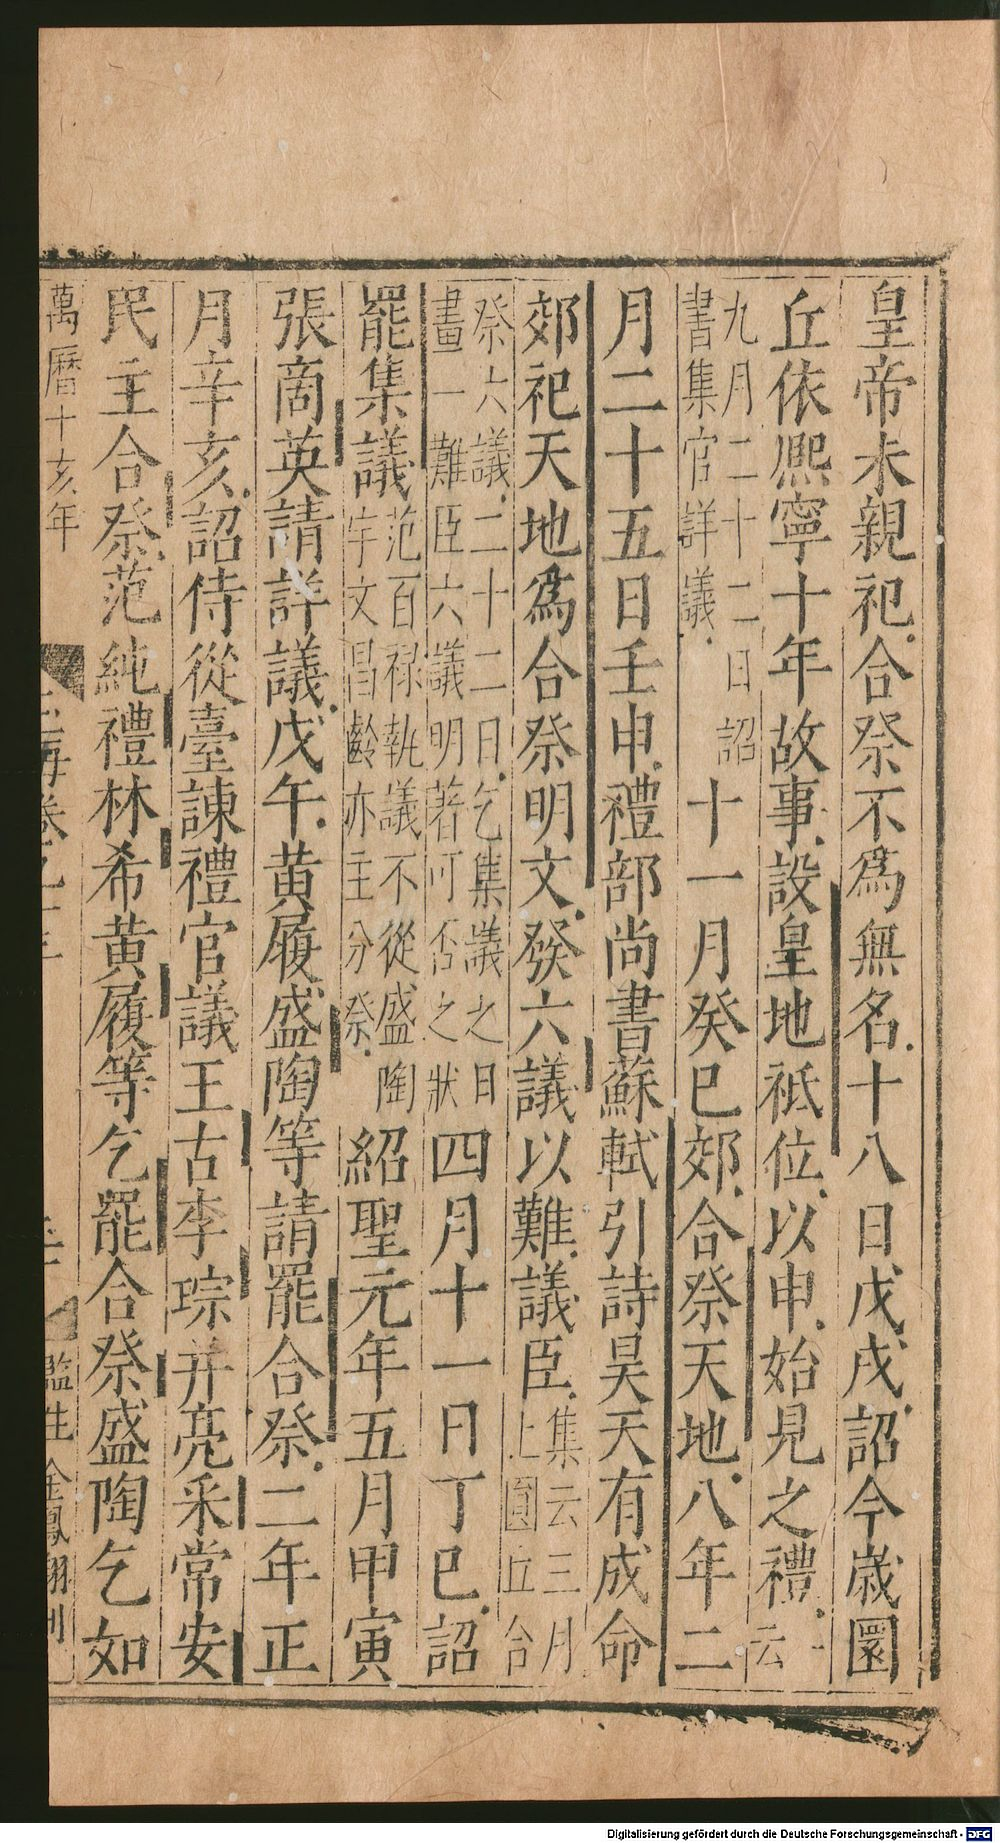 皇帝未親祀合祭不爲無名十八日戊戌詔今歲圜
丘依熙寧十年故事設皇地祇位以申始見之禮一云
九月二十二日詔
書集官詳議
十一月癸巳郊合祭天地八年二
月二十五日壬申禮部尚書蘇軾引詩昊天有成命
郊祀天地爲合祭明文發六議以難議臣
集云三月
上圓丘合
祭六議二十二日乞集議之日
畫一難臣六議明著可否之狀
四月十一日丁巳詔
罷集議
范百祿執議不從盛陶
宇文昌齡亦主分祭
紹聖元年五月甲寅
張商英請詳議戊午黃履盛陶等請罷合祭二年正
月辛亥詔侍從臺諫禮官議王古李琮井亮采常安
民主合祭范純禮林希黃履等乞罷合祭盛陶乞如
萬曆十亥年
監生金鳳翔刊
Digitalisierung gefördert durch die Deutsche Forschungsgemeinschaft - DFG